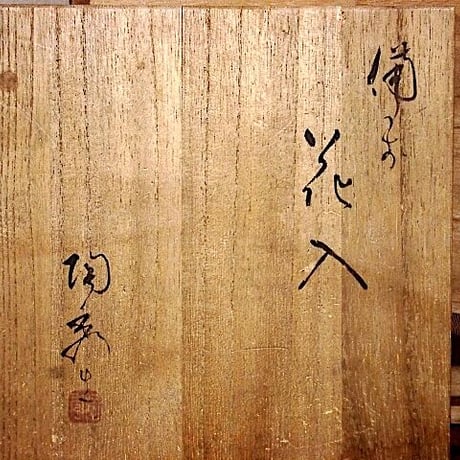 備前
花入
陶秀